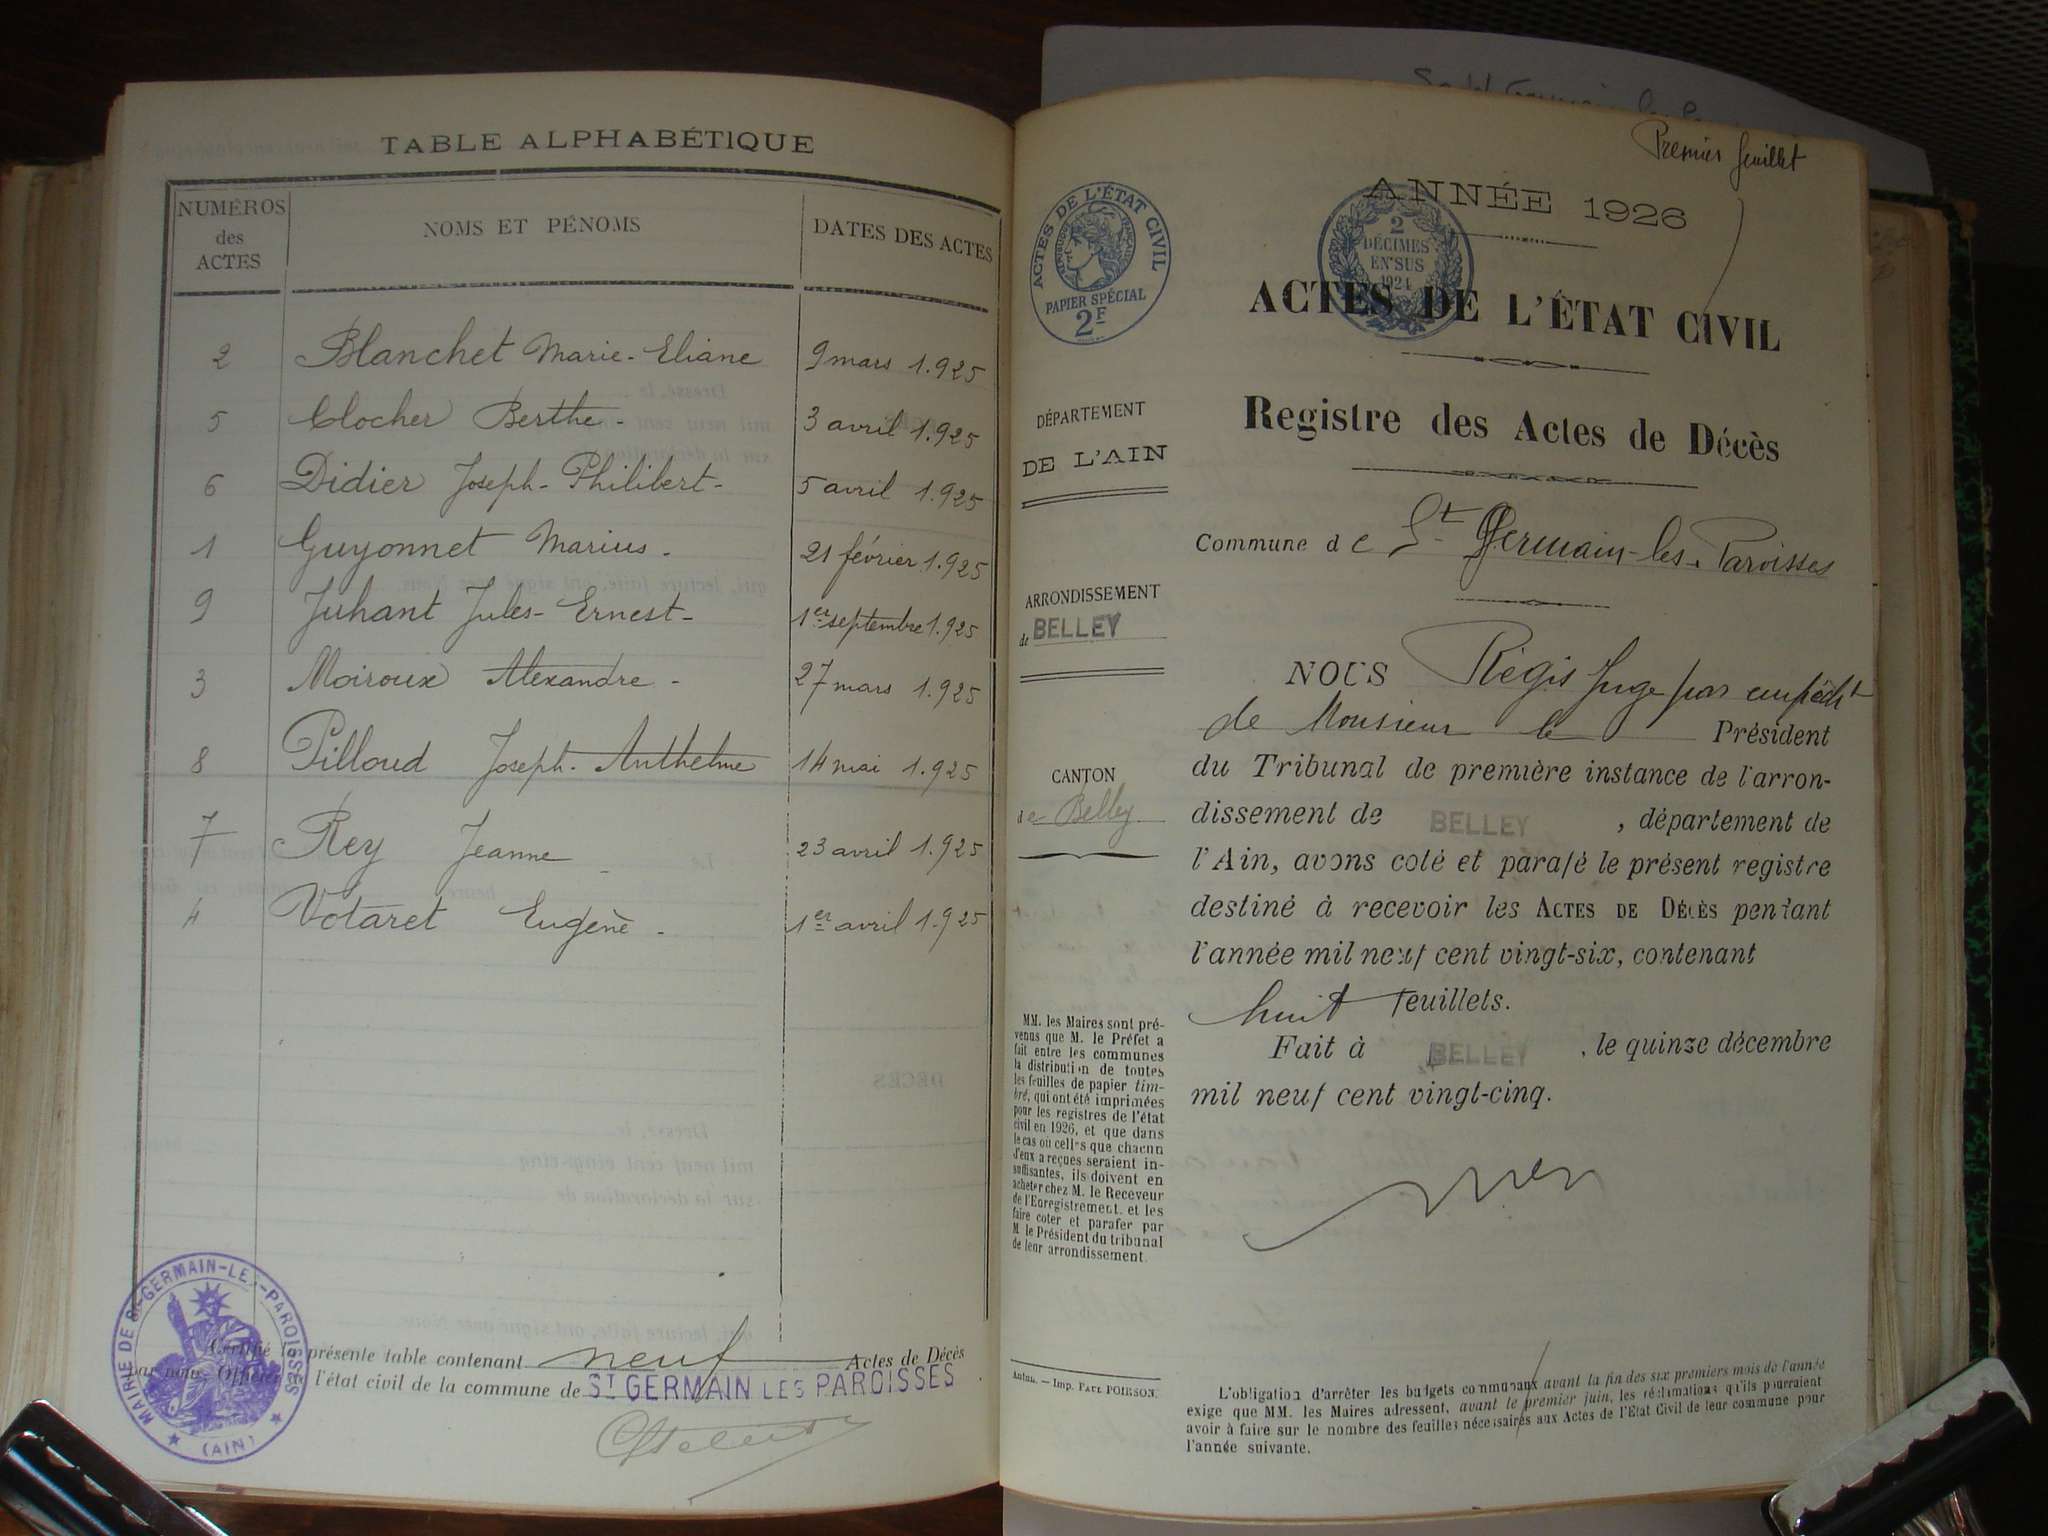 TABLE ALPHABÉTIQUE
NUMÉROS
des
ACTES
NOMS ET PÉNOMS
DATES DES ACTES
2 Blanchet Marie-Eliane 9 mars 1.925
5 Clocher Berthe - 3 avril 1.925
6 Didier Joseph-Philibert - 5 avril 1.925
1 Guyonnet Marius - 21 février 1.925
9 Juhant Jules-Ernest - 1er septembre 1.925
3 Moiroux Alexandre - 27 mars 1.925
8 Pilloud Joseph-Anthelme 14 mai 1.925
7 Rey Jeanne - 23 avril 1.925
4 Votaret Eugène - 1er avril 1.925
Certifié la présente table contenant neuf Actes de Décès
par nous, Officier de l'état civil de la commune de ST GERMAIN LES PAROISSES
MAIRIE DE ST-GERMAIN-LES-PAROISSES
(AIN)
Premier feuillet
ANNÉE 1926
ACTES DE L'ÉTAT CIVIL
RÉPUBLIQUE FRANÇAISE
PAPIER SPÉCIAL
2F
2
DÉCIMES
EN SUS
1924
ACTES DE L'ÉTAT CIVIL
Registre des Actes de Décès
Commune de St Germain-les-Paroisses
DÉPARTEMENT
DE L'AIN
ARRONDISSEMENT
de BELLEY
CANTON
de Belley
NOUS Régis Juge par empêcht
de Monsieur le Président
du Tribunal de première instance de l'arron-
dissement de BELLEY, département de
l'Ain, avons coté et parafé le présent registre
destiné à recevoir les ACTES DE DÉCÈS pendant
l'année mil neuf cent vingt-six, contenant
huit feuillets.
Fait à BELLEY, le quinze décembre
mil neuf cent vingt-cinq.
MM. les Maires sont pré-
venus que M. le Préfet a
fait entre les communes
la distribution de toutes
les feuilles de papier tim-
bré, qui ont été imprimées
pour les registres de l'état
civil en 1926, et que dans
le cas où celles que chacun
d'eux a reçues seraient in-
suffisantes, ils doivent en
acheter chez M. le Receveur
de l'Enregistrement. et les
faire coter et parafer par
M le Président du tribunal
de leur arrondissement.
Autun. — Imp. PAUL POIRSON.
L'obligation d'arrêter les budgets communaux avant la fin des six premiers mois de l'année
exige que MM. les Maires adressent, avant le premier juin, les réclamations qu'ils pourraient
avoir à faire sur le nombre des feuilles nécessaires aux Actes de l'Etat Civil de leur commune pour
l'année suivante.